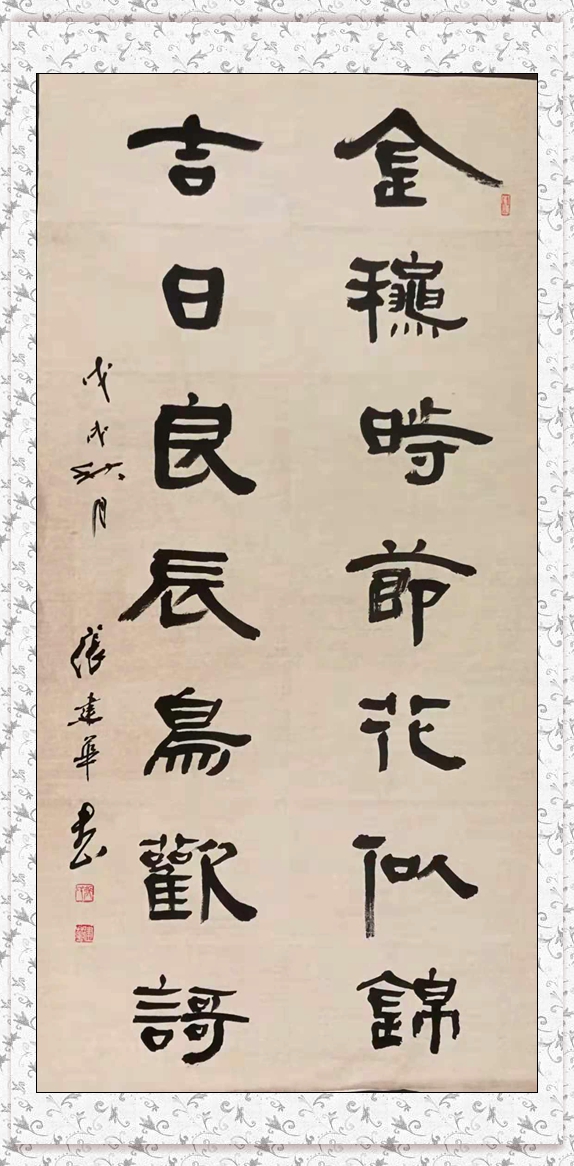 金龝時節花似錦
吉日良辰鳥歡謌
戊戌秋月
張建華书